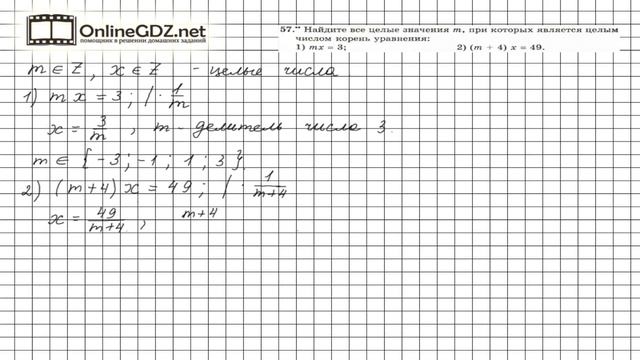 OnlineGDZ.net
помощник в решении домашних заданий
57.** Найдите все целые значения m, при которых является целым
числом корень уравнения:
1) mx = 3; 2) (m + 4) x = 49.
m ∈ Z, x ∈ Z - целые числа
1) m x = 3; | · 1/m
x = 3/m, m - делитель числа 3.
m ∈ {-3; -1; 1; 3}.
2) (m+4) x = 49; | · 1/(m+4)
x = 49/(m+4), m+4